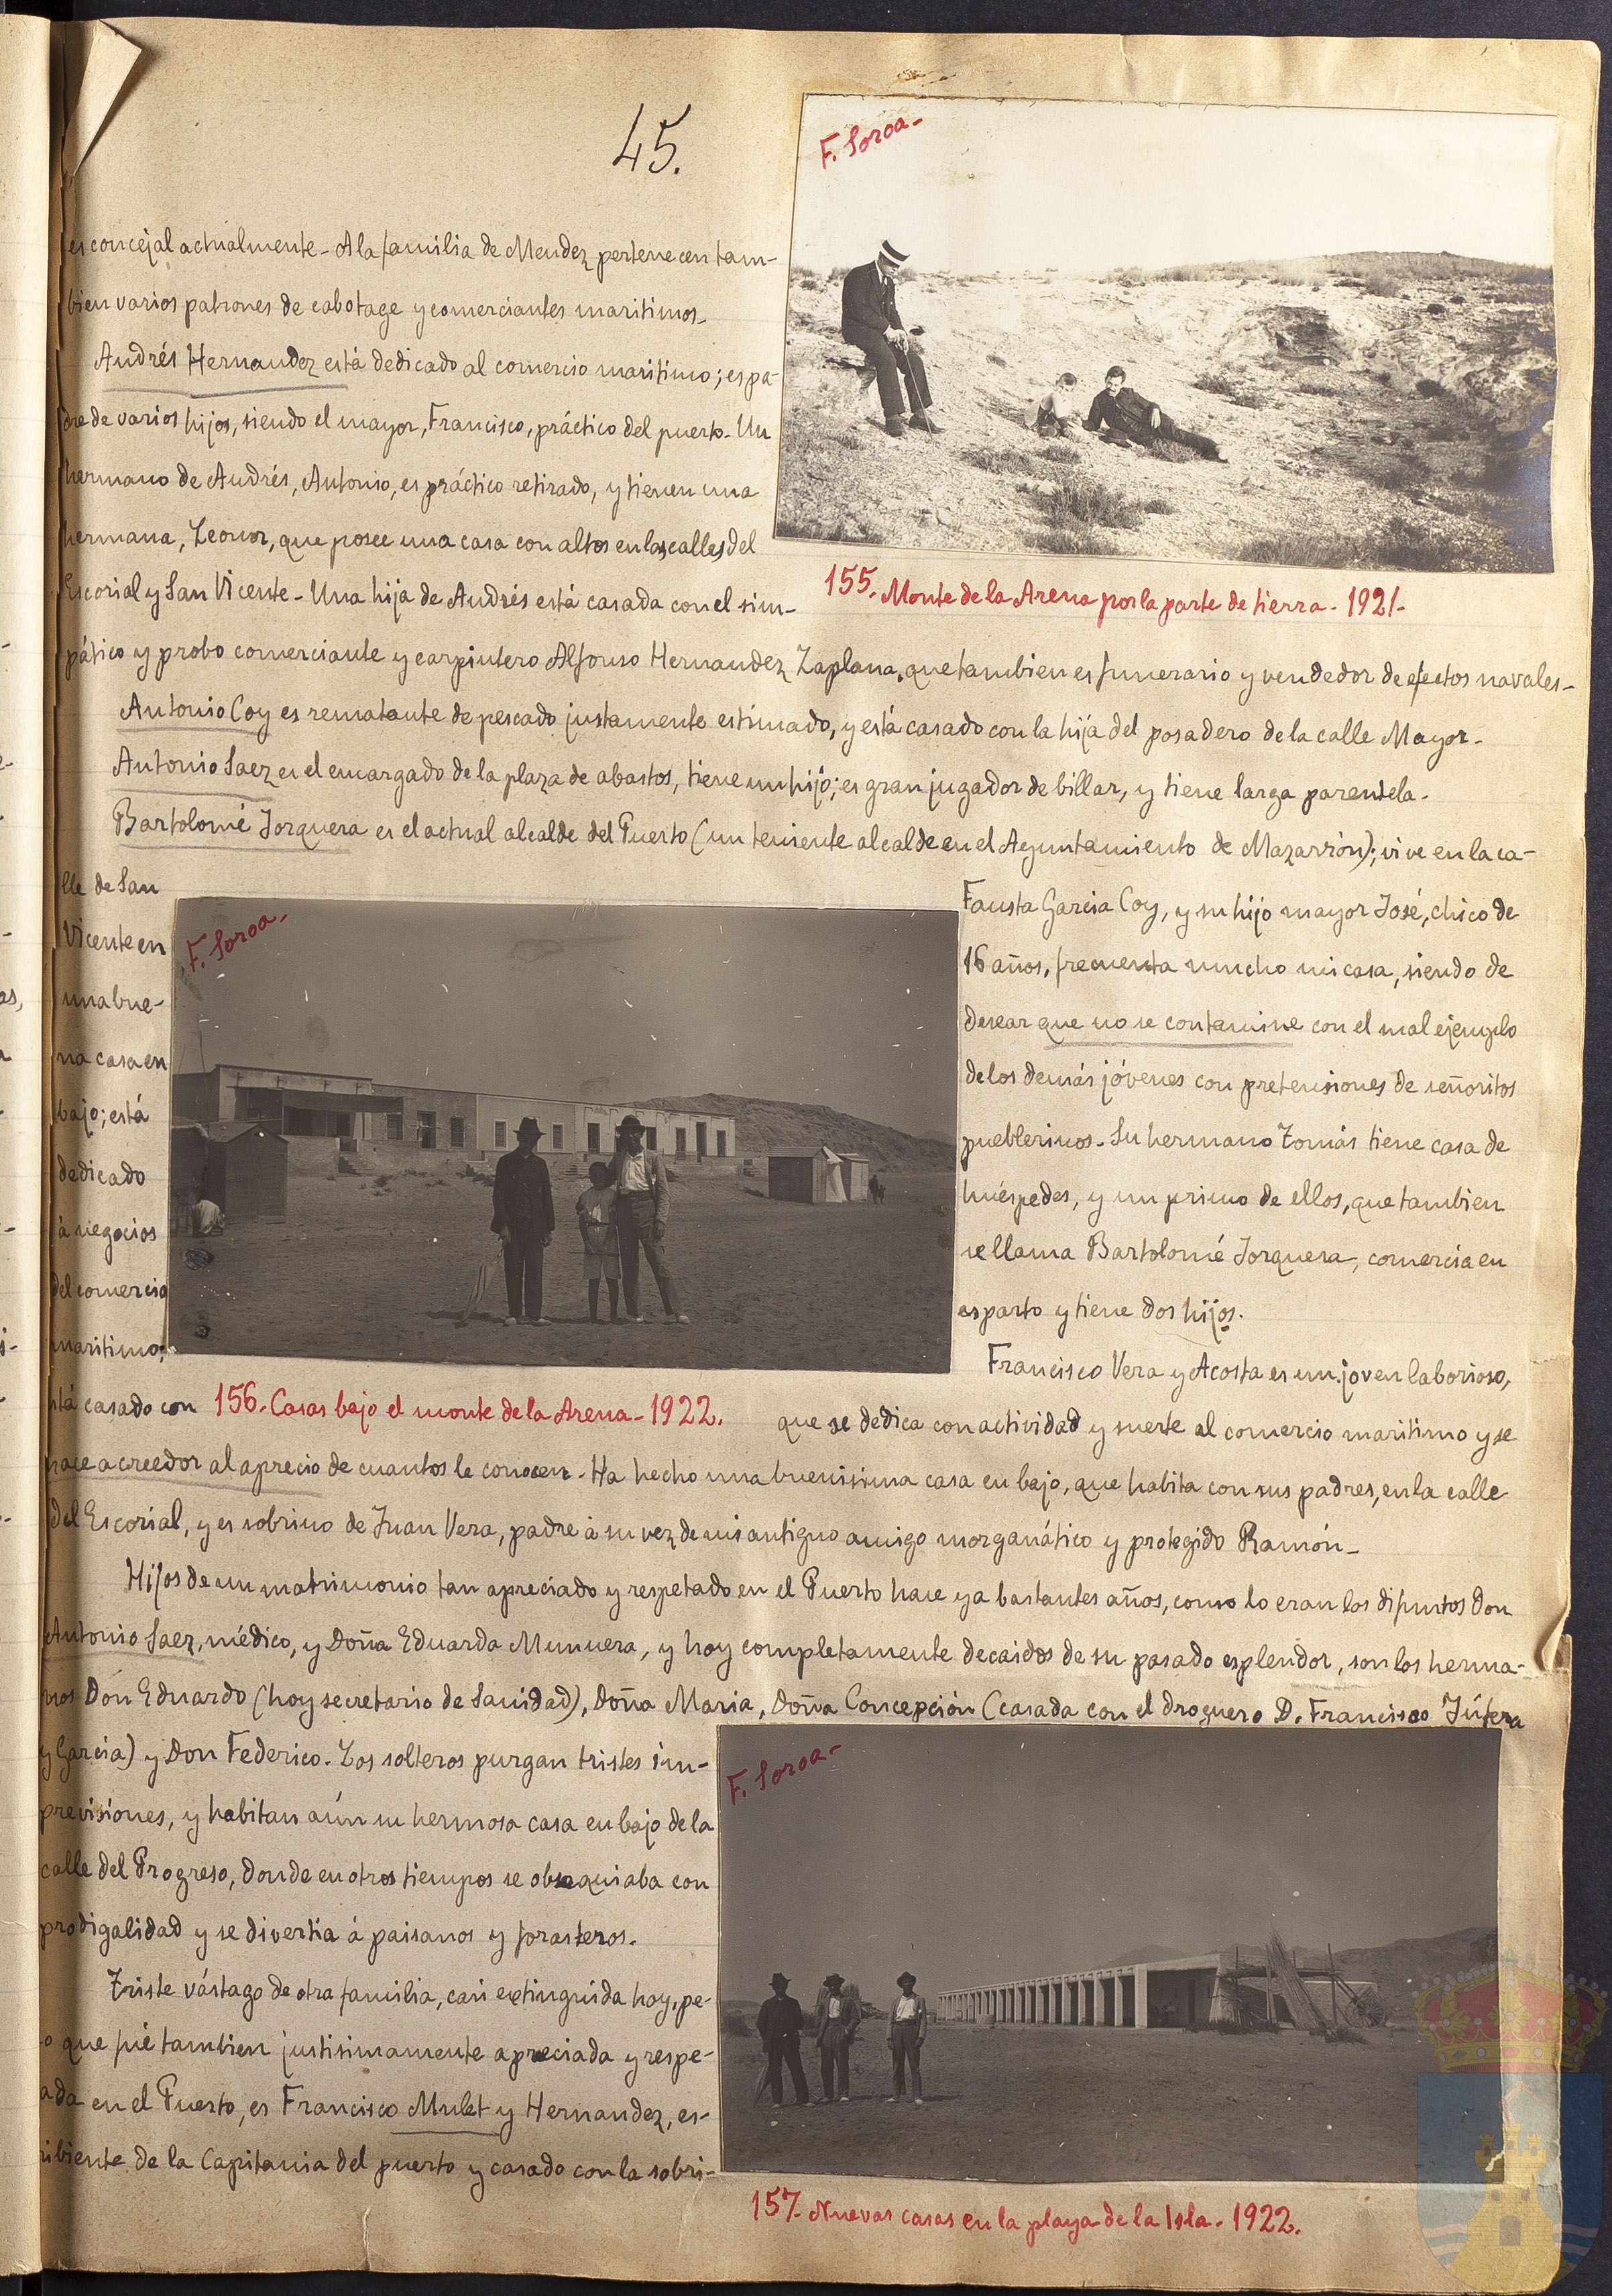 45.
F. Soroa-
es concejal actualmente- A la familia de Mendez pertenecen tam-
bien varios patrones de cabotage y comerciantes maritimos-
Andrés Hernandez está dedicado al comercio maritimo; es pa-
dre de varios hijos, siendo el mayor, Francisco, práctico del puerto- Un
hermano de Andrés, Antonio, es práctico retirado, y tienen una
hermana, Leonor, que posee una casa con altos en las calles del
Escorial y San Vicente- Una hija de Andrés está casada con el sim-
155. Monte de la Arena por la parte de tierra- 1921-
pático y probo comerciante y carpintero Alfonso Hernandez Zaplana, que tambien es funerario y vendedor de efectos navales-
Antonio Coy es rematante de pescado justamente estimado, y está casado con la hija del posadero de la calle Mayor-
Antonio Saez es el encargado de la plaza de abastos, tiene un hijo; es gran jugador de billar, y tiene larga parentela.
Bartolomé Jorquera es el actual alcalde del Puerto (un teniente alcalde en el Ayuntamiento de Mazarrón); vive en la ca-
lle de San
Vicente en
una bue-
na casa en
bajo; está
dedicado
á negocios
del comercio
maritimo;
está casado con
F. Soroa-
156. Casas bajo el monte de la Arena- 1922.
Fausta Garcia Coy, y su hijo mayor José, chico de
16 años, frecuenta mucho mi casa, siendo de
desear que no se contamine con el mal ejemplo
de los demás jóvenes con pretensiones de señoritos
pueblerinos- Su hermano Tomás tiene casa de
huéspedes, y un primo de ellos, que tambien
se llama Bartolomé Jorquera, comercia en
esparto y tiene dos hijos.
Francisco Vera y Acosta es un joven laborioso,
que se dedica con actividad y suerte al comercio maritimo y se
hace acreedor al aprecio de cuantos le conocen- Ha hecho una buenisima casa en bajo, que habita con sus padres, en la calle
del Escorial, y es sobrino de Juan Vera, padre á su vez de mi antiguo amigo morganático y protegido Ramón-
Hijos de un matrimonio tan apreciado y respetado en el Puerto hace ya bastantes años, como lo eran los difuntos don
Antonio Saez, médico, y Doña Eduarda Munuera, y hoy completamente decaidos de su pasado esplendor, son los herma-
nos Don Eduardo (hoy secretario de Sanidad), Doña Maria, Doña Concepción (casada con el droguero D. Francisco Júfera
y Garcia) y Don Federico- Los solteros purgan tristes im-
previsiones, y habitan aún su hermosa casa en bajo de la
calle del Progreso, donde en otros tiempos se obsequiaba con
prodigalidad y se divertia á paisanos y forasteros.
Triste vástago de otra familia, casi extinguida hoy, pe-
o que fué tambien justisimamente apreciada y respe-
ada en el Puerto, es Francisco Mulet y Hernandez, es-
ribiente de la Capitania del puerto y casado con la sobri-
F. Soroa-
157- Nuevas casas en la playa de la Isla- 1922.